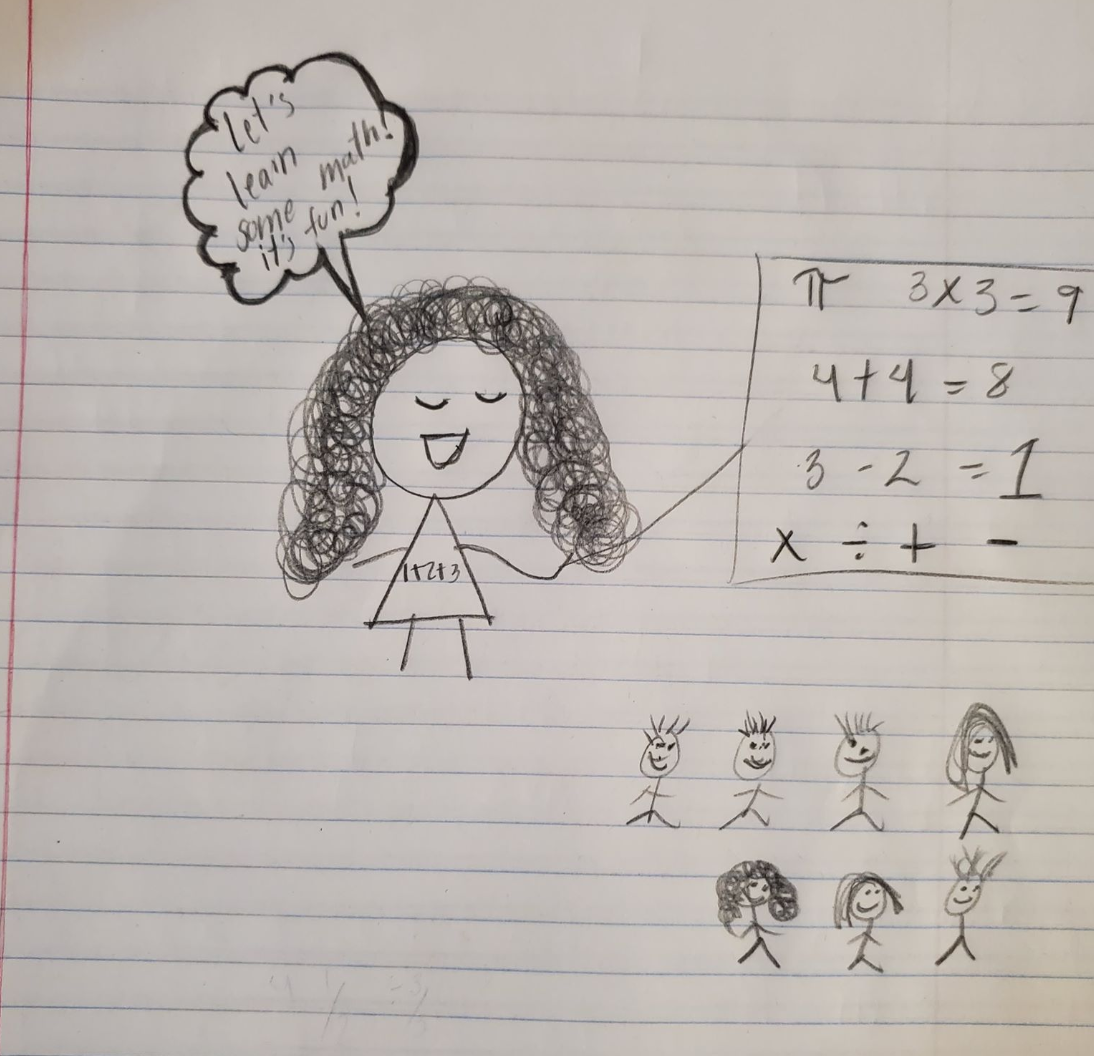 Let's
learn
some math!
it's fun!
π 3x3=9
4+4=8
3-2=1
x ÷ + -
1+2+3